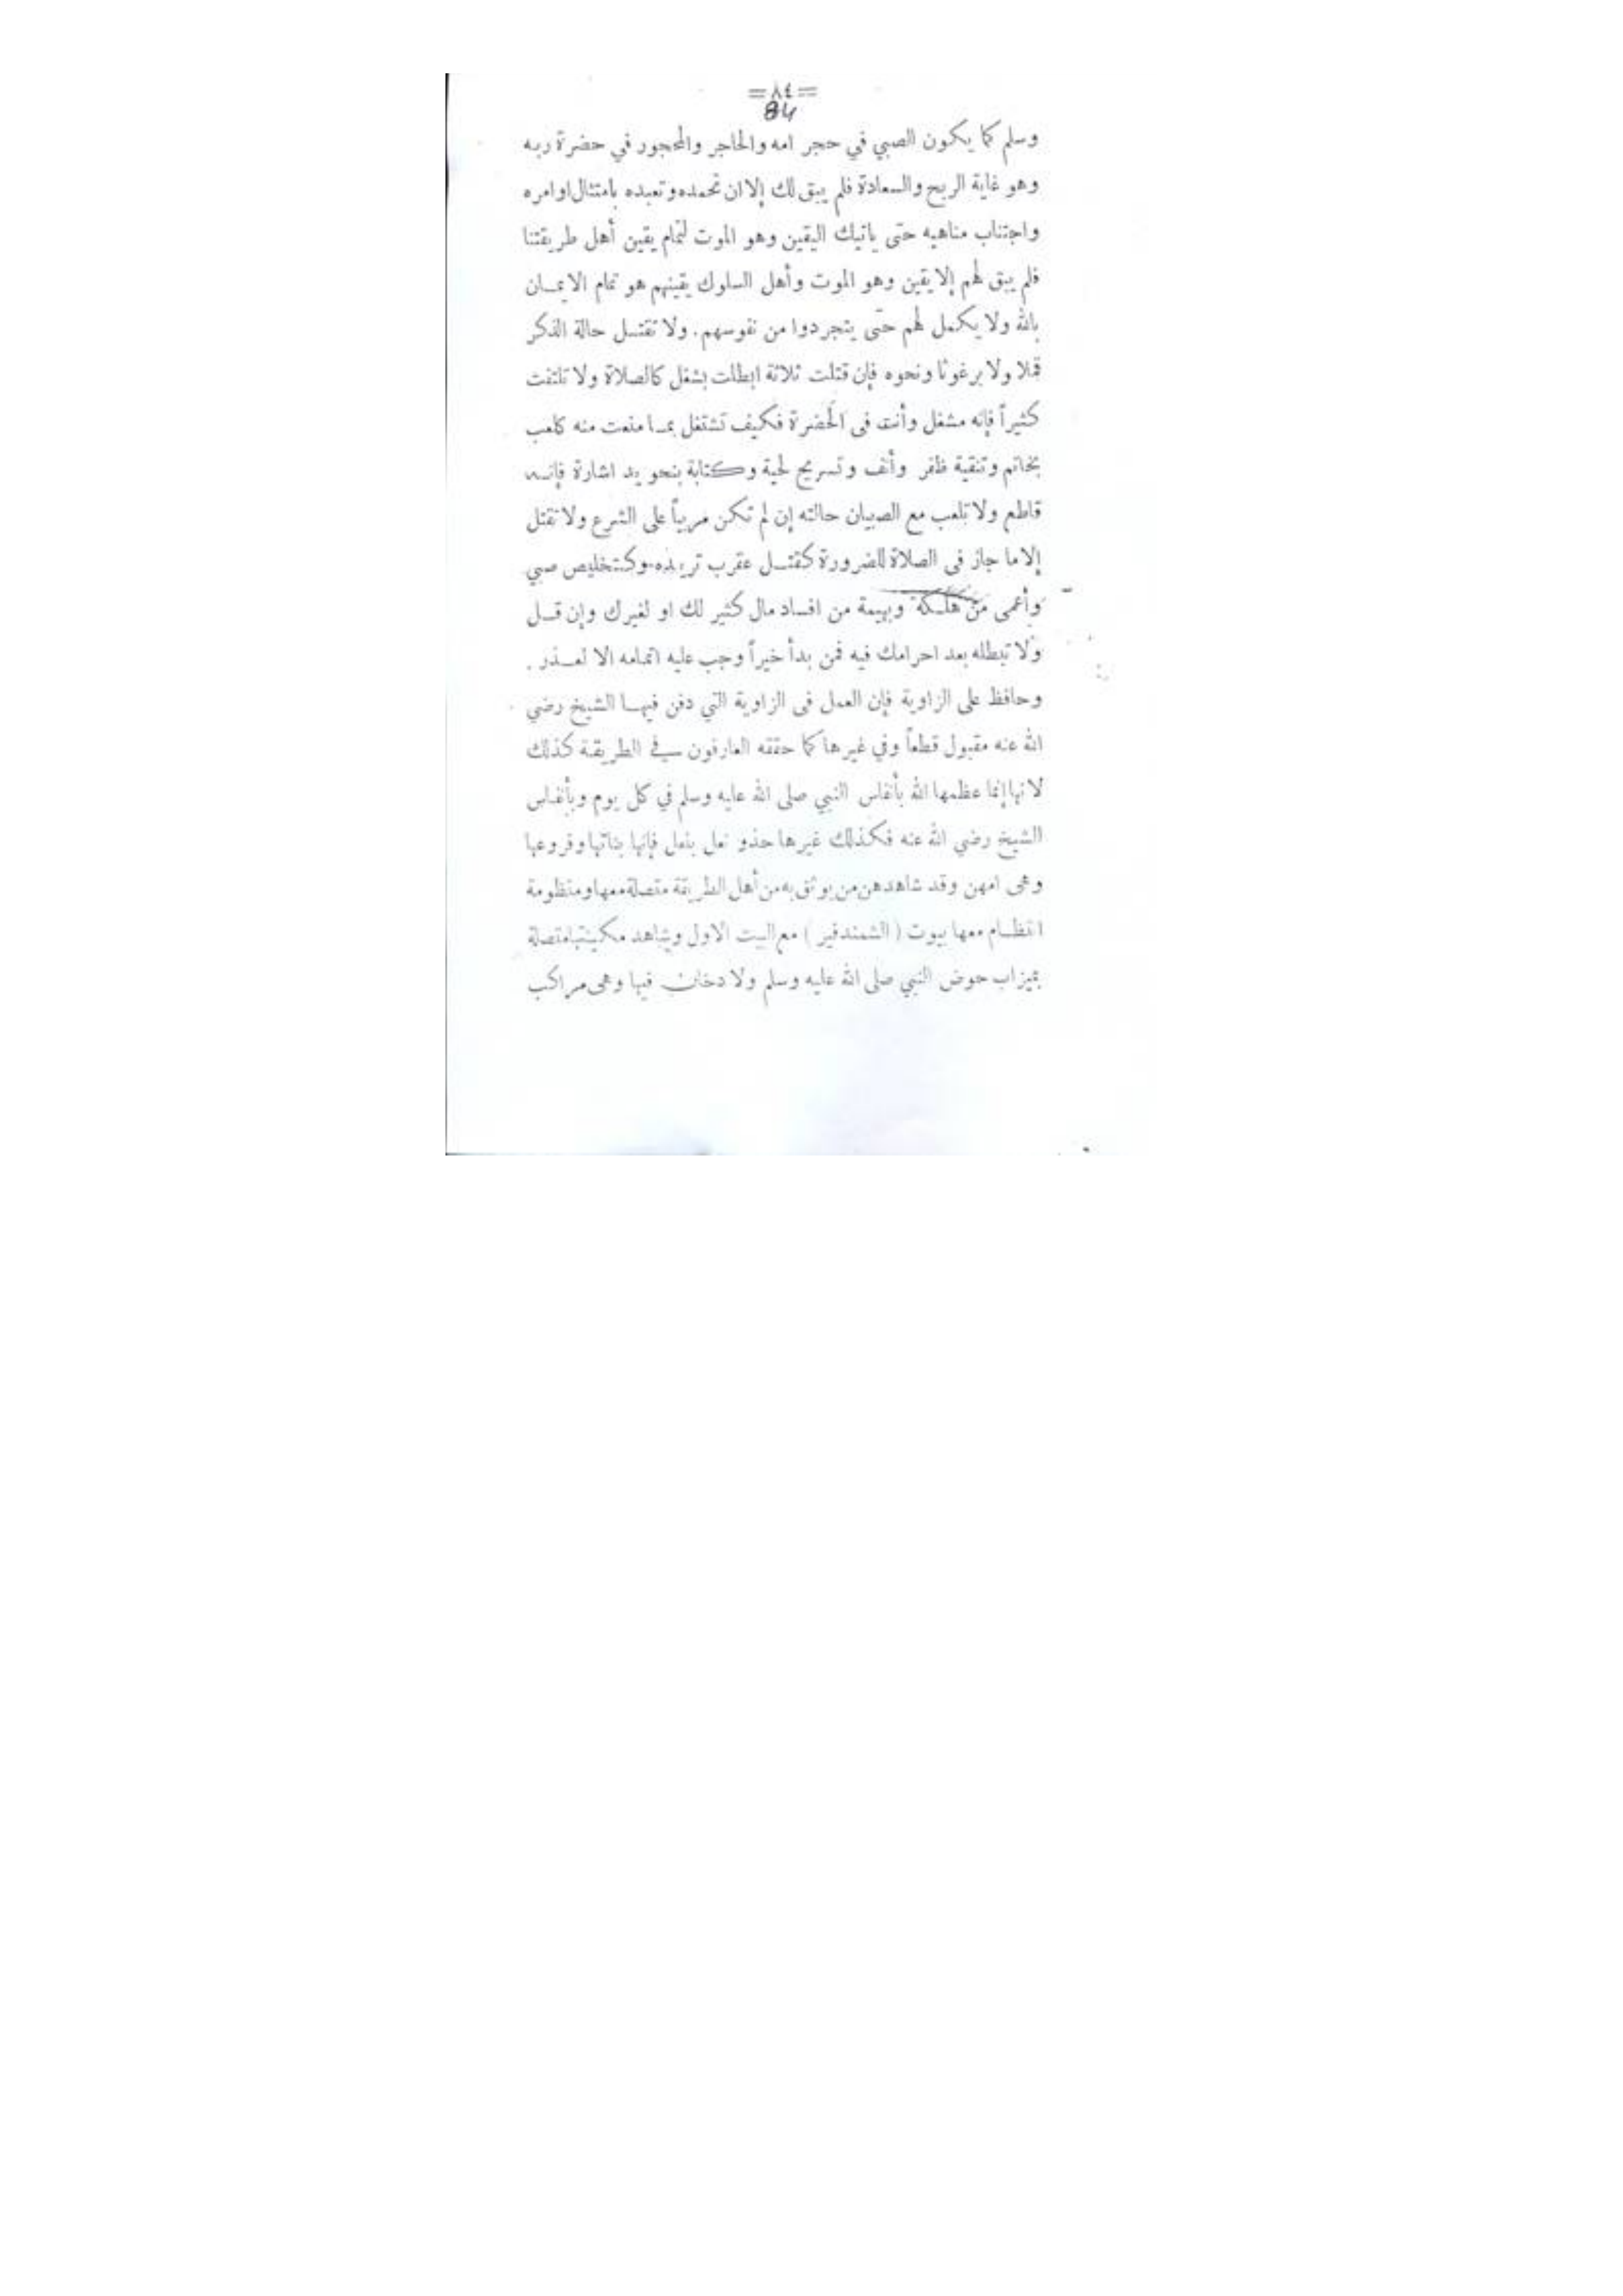 =٨٤=
84
وسلم كما يكون الصبي في حجر امه والحاجر والمحجور في حضرة ربه
وهو غاية الربح والسعادة فلم يبق لك إلا ان تحمده وتعبده بامتثال اوامره
واجتناب مناهيه حتى ياتيك اليقين وهو الموت لتمام يقين أهل طريقتنا
فلم يبق لهم إلا يقين وهو الموت وأهل السلوك يقينهم هو تمام الايمان
بالله ولا يكمل لهم حتى يتجردوا من نفوسهم. ولا تقتل حالة الذكر
قملا ولا برغوثا ونحوه فإن قتلت ثلاثة ابطلت بشغل كالصلاة ولا تلتفت
كثيراً فإنه مشغل وأنت في الحَضرة فكيف تشتغل بما منعت منه كلعب
بخاتم وتنقية ظفر وأنف وتسريح لحية وكتابة بنحو يد اشارة فإنه
قاطع ولا تلعب مع الصبيان حالته إن لم تكن مربياً على الشرع ولا تقتل
إلا ما جاز في الصلاة للضرورة كقتل عقرب تريده وكتخليص صبي
وأعمى من هلكة وبهيمة من افساد مال كثير لك او لغيرك وإن قل
ولا تبطله بعد احرامك فيه فمن بدأ خيراً وجب عليه اتمامه الا لعذر .
وحافظ على الزاوية فإن العمل في الزاوية التي دفن فيها الشيخ رضي
الله عنه مقبول قطعاً وفي غيرها كما حققه العارفون في الطريقة كذلك
لانها إنما عظمها الله بأنفاس النبي صلى الله عليه وسلم في كل يوم وبأنفاس
الشيخ رضي الله عنه فكذلك غيرها حذو نعل بنعل فإنها بناتها وفروعها
وهي امهن وقد شاهدهن من يوثق به من أهل الطريقة متصلة معها ومنظومة
انتظام معها بيوت ( الشمندفير ) مع البيت الاول ويشاهد مكينتها متصلة
بميزاب حوض النبي صلى الله عليه وسلم ولا دخان فيها وهي مراكب